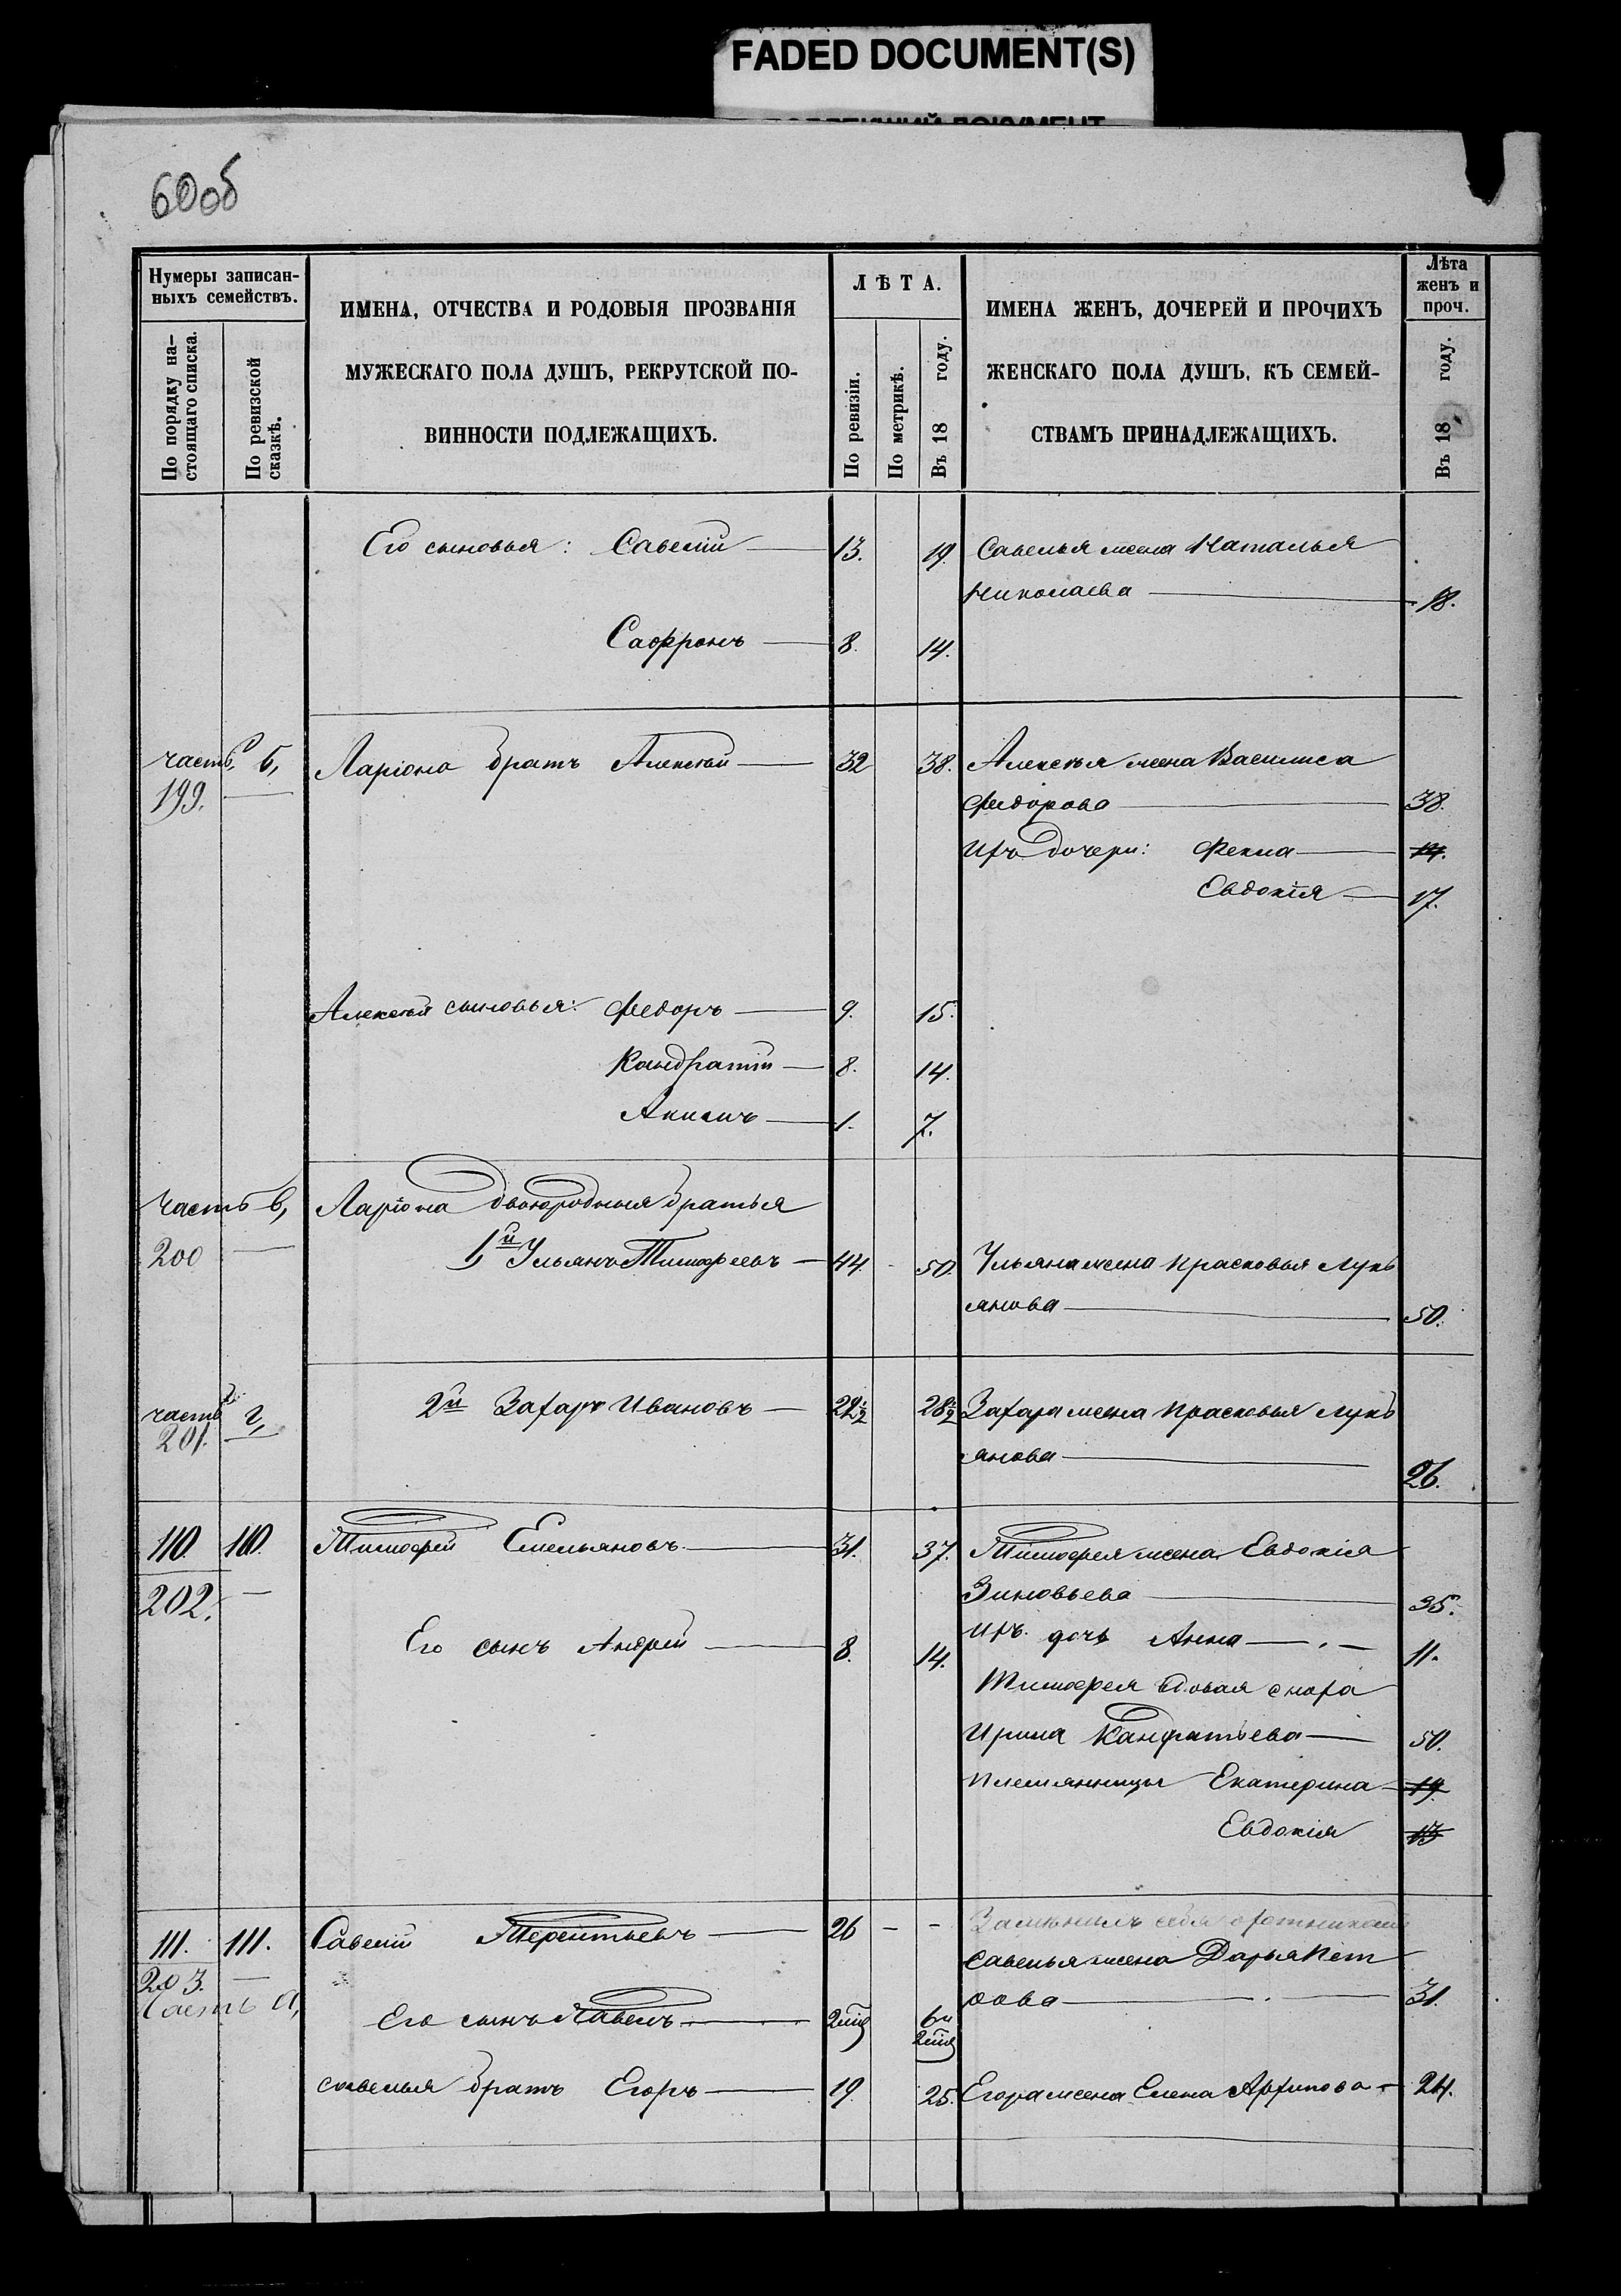 FADED DOCUMENT(S)
60об
Нумеры записан-
ныхъ семействъ.
По порядку на-
стоящаго списка.
По ревизской
сказкѣ.
ИМЕНА, ОТЧЕСТВА И РОДОВЫЯ ПРОЗВАНІЯ
МУЖЕСКАГО ПОЛА ДУШЪ, РЕКРУТСКОЙ ПО-
ВИННОСТИ ПОДЛЕЖАЩИХЪ.
ЛѢТА.
По ревизіи.
По метрикѣ.
Въ 18 году.
ИМЕНА ЖЕНЪ, ДОЧЕРЕЙ И ПРОЧИХЪ
ЖЕНСКАГО ПОЛА ДУШЪ, КЪ СЕМЕЙ-
СТВАМЪ ПРИНАДЛЕЖАЩИХЪ.
Лѣта
женъ и
проч.
Въ 18 году.
Его сыновья: Савелій — 13. 19. Савелья жена Наталья
Николаева — 18.
Софронъ — 8. 14.
часть б, Ларіона братъ Алексѣй — 32 38. Алексѣя жена Василиса
199. — Федорова — 38.
Ихъ дочери: Фекла — 14.
Евдокія — 17.
Алексѣя сыновья: Федоръ — 9. 15.
Кандратій — 8. 14.
Акимъ — 1. 7.
Часть в, Ларіона двоюродныя братья
200 — 1й Ульянъ Тимофеевъ — 44. 50. Ульяна жена Прасковья Лукь
янова — 50.
часть г, 2й Захаръ Ивановъ — 22½ 28½ Захара жена Прасковья Лукь
201. янова — 26.
110. 110. Тимофей Емельяновъ — 31. 37. Тимофея жена Евдокія
202. — Зиновьева — 35.
Его сынъ Андрей — 8. 14. Ихъ дочь Анна — 11.
Тимофея вдовая сноха
Ирина Кандратьева — 50.
племянницы Екатерина — 19.
Евдокія 13
111. 111. Савелій Терентьевъ — 26 - - Замѣнилъ себя охотникомъ
203. — Савелья жена Дарья Пет
Часть а, рова — 31.
Его сынъ Павелъ — 2 мѣс 6 и 2 мѣс
Савелья братъ Егоръ — 19. 25. Егора жена Елена Архипова — 24.